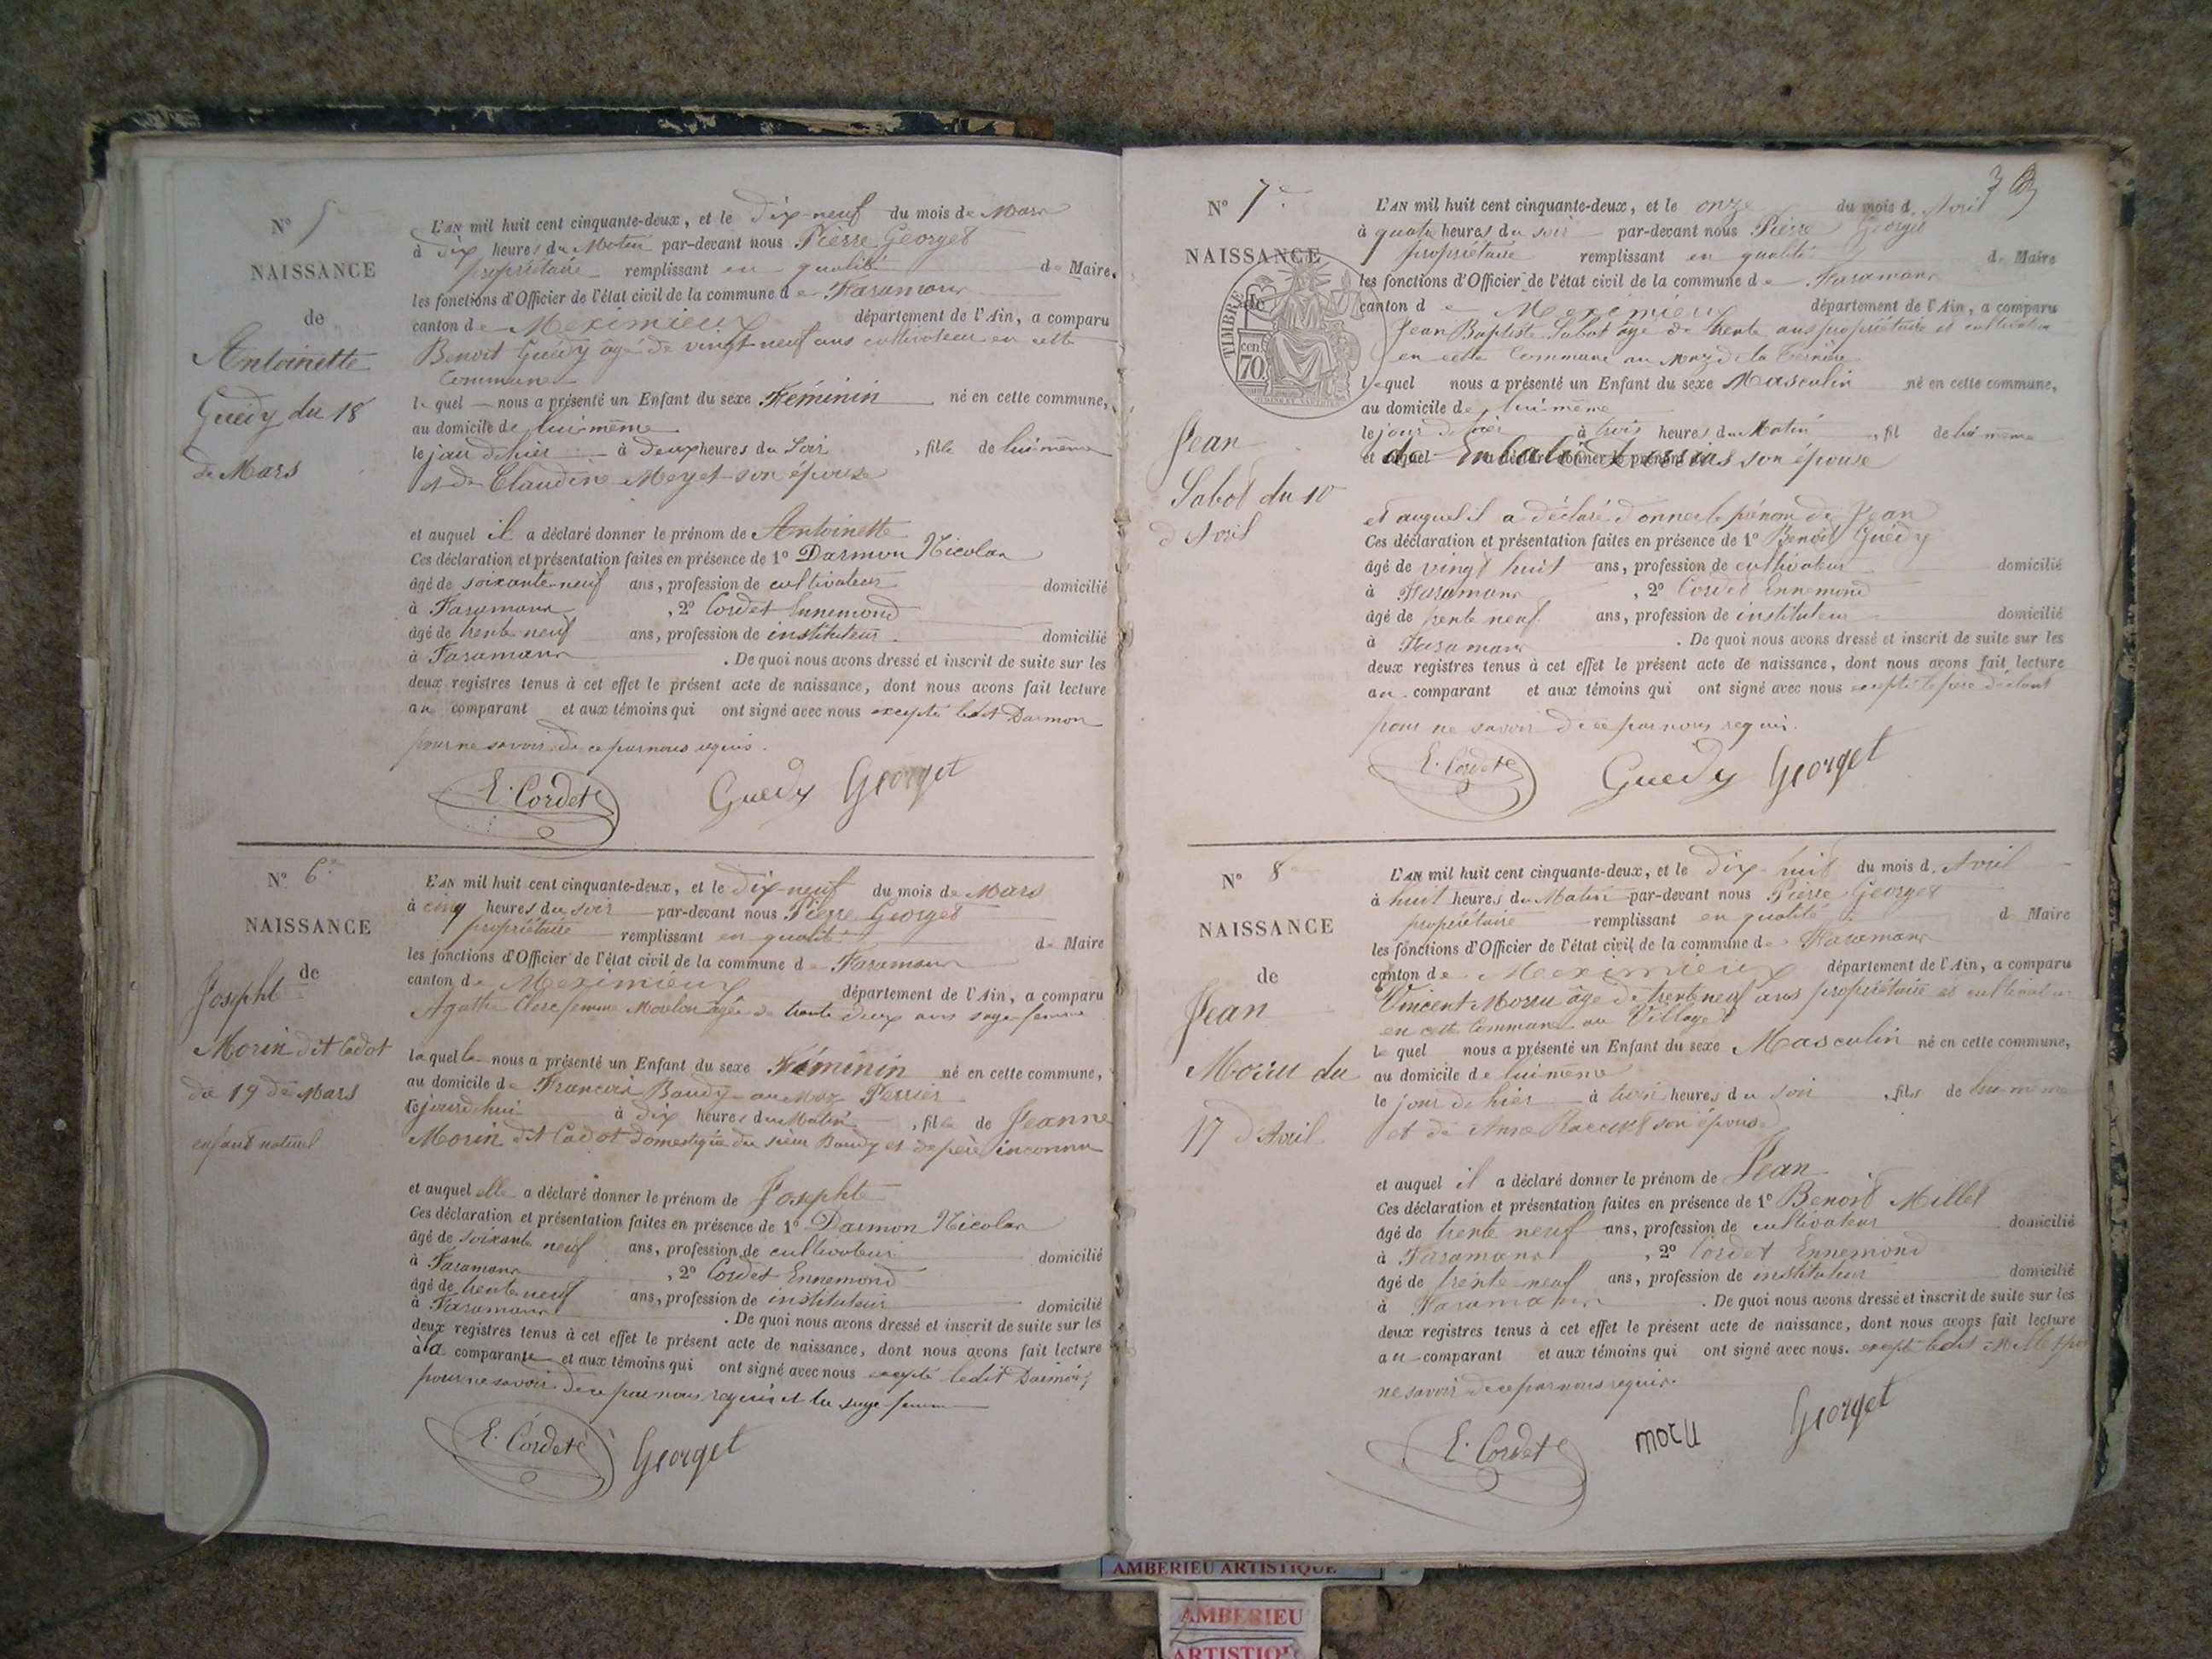 N° 5
NAISSANCE
de
Antoinette
Guédy du 18
de Mars
L'AN mil huit cent cinquante-deux, et le dix-neuf du mois de Mars
à dix heures du Matin par-devant nous Pierre Georget
propriétaire remplissant en qualité de Maire
les fonctions d'Officier de l'état civil de la commune de Faramans
canton de Meximieux département de l'Ain, a comparu
Benoit Guédy âgé de vingt neuf ans cultivateur en cette
Commune
lequel nous a présenté un Enfant du sexe Féminin né en cette commune,
au domicile de lui-même
le jour d'hier à deux heures du Soir, fille de lui même
et de Claudine Meyet son épouse
et auquel il a déclaré donner le prénom de Antoinette
Ces déclaration et présentation faites en présence de 1° Darmon Nicolas
âgé de soixante-neuf ans, profession de cultivateur domicilié
à Faramans, 2° Cordet Ennemond
âgé de trente neuf ans, profession de instituteur domicilié
à Faramans. De quoi nous avons dressé et inscrit de suite sur les
deux registres tenus à cet effet le présent acte de naissance, dont nous avons fait lecture
au comparant et aux témoins qui ont signé avec nous excepté ledit Darmon
pour ne savoir de ce par nous requis.
E. Cordet Guedy Georget
N° 6
NAISSANCE
de
Josephte
Morin dit Cadot
du 19 de Mars
enfant naturel
L'AN mil huit cent cinquante-deux, et le dix-neuf du mois de Mars
à cinq heures du soir par-devant nous Pierre Georget
propriétaire remplissant en qualité de Maire
les fonctions d'Officier de l'état civil de la commune de Faramans
canton de Meximieux département de l'Ain, a comparu
Agathe Clerc femme Moulon âgée de trente deux ans sage femme
laquelle nous a présenté un Enfant du sexe Féminin né en cette commune,
au domicile de François Baudy au Maz Perrier
le jourdhui à dix heures du Matin, fille de Jeanne
Morin dit Cadot domestique du sieur Baudy et de père inconnu
et auquel elle a déclaré donner le prénom de Josephte
Ces déclaration et présentation faites en présence de 1° Darmon Nicolas
âgé de soixante neuf ans, profession de cultivateur domicilié
à Faramans, 2° Cordet Ennemond
âgé de trente neuf ans, profession de instituteur domicilié
à Faramans. De quoi nous avons dressé et inscrit de suite sur les
deux registres tenus à cet effet le présent acte de naissance, dont nous avons fait lecture
à la comparante et aux témoins qui ont signé avec nous excepté ledit Darmon
pour ne savoir de ce par nous requis et la sage femme
E. Cordet Georget
N° 7
NAISSANCE
TIMBRE
cen.
70
Jean
Sabot du 10
d'Avril
L'AN mil huit cent cinquante-deux, et le onze du mois d'Avril
à quatre heures du soir par-devant nous Pierre Georget
propriétaire remplissant en qualité de Maire
les fonctions d'Officier de l'état civil de la commune de Faramans
canton de Meximieux département de l'Ain, a comparu
Jean Baptiste Sabot âgé de trente ans propriétaire et cultivateur
en cette Commune au Maz de la
lequel nous a présenté un Enfant du sexe Masculin né en cette commune,
au domicile de lui même
le jour d'hier à trois heures du Matin, fil de lui même
son épouse
et auquel il a déclaré donner le prénom de Jean
Ces déclaration et présentation faites en présence de 1° Benoit Guédy
âgé de vingt huit ans, profession de cultivateur domicilié
à Faramans, 2° Cordet Ennemond
âgé de trente neuf ans, profession de instituteur domicilié
à Faramans. De quoi nous avons dressé et inscrit de suite sur les
deux registres tenus à cet effet le présent acte de naissance, dont nous avons fait lecture
au comparant et aux témoins qui ont signé avec nous excepté le père
pour ne savoir de ce par nous requis.
E. Cordet Guedy Georget
N° 8
NAISSANCE
de
Jean
Morru du
17 d'Avril
L'AN mil huit cent cinquante-deux, et le dix huit du mois d'Avril
à huit heures du Matin par-devant nous Pierre Georget
propriétaire remplissant en qualité de Maire
les fonctions d'Officier de l'état civil de la commune de Faramans
canton de Meximieux département de l'Ain, a comparu
Vincent Morru âgé de trente neuf ans propriétaire et cultivateur
en cette Commune au Village
lequel nous a présenté un Enfant du sexe Masculin né en cette commune,
au domicile de lui même
le jour d'hier à trois heures du soir, fils de lui même
et de Anne son épouse
et auquel il a déclaré donner le prénom de Jean
Ces déclaration et présentation faites en présence de 1° Benoit Millet
âgé de trente neuf ans, profession de cultivateur domicilié
à Faramans, 2° Cordet Ennemond
âgé de trente neuf ans, profession de instituteur domicilié
à Faramans. De quoi nous avons dressé et inscrit de suite sur les
deux registres tenus à cet effet le présent acte de naissance, dont nous avons fait lecture
au comparant et aux témoins qui ont signé avec nous. excepté ledit Millet pour
ne savoir de ce par nous requis.
E. Cordet moru Georget
AMBERIEU ARTISTIQUE
AMBERIEU
ARTISTIQUE